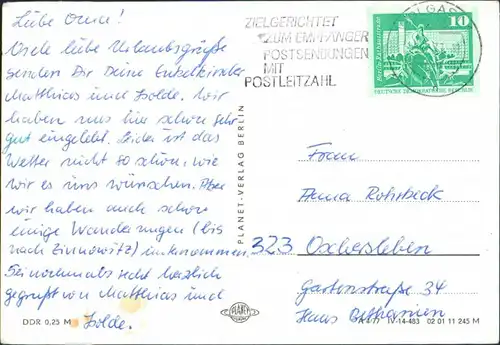 Liebe Oma!
Viele liebe Urlaubsgrüße
senden Dir Deine Enkelkinder
Matthias und Isolde. Wir
haben uns hier schon sehr
gut eingelebt. Leider ist das
Wetter nicht so schön, wie
wir es uns wünschen. Aber
wir haben auch schon
einige Wanderungen (bis
nach Zinnowitz) unternommen.
Sei nochmals recht herzlich
gegrüßt von Matthias und
Isolde.
DDR 0,25 M
PLANET-VERLAG BERLIN
PLANET
ZIELGERICHTET
ZUM EMPFÄNGER
POSTSENDUNGEN
MIT
POSTLEITZAHL
10
DEUTSCHE DEMOKRATISCHE REPUBLIK
Frau
Anna Rohrbeck
323 Oschersleben
Gartenstraße 34
Haus Bethanien
IV-14-483 02 01 11 245 M